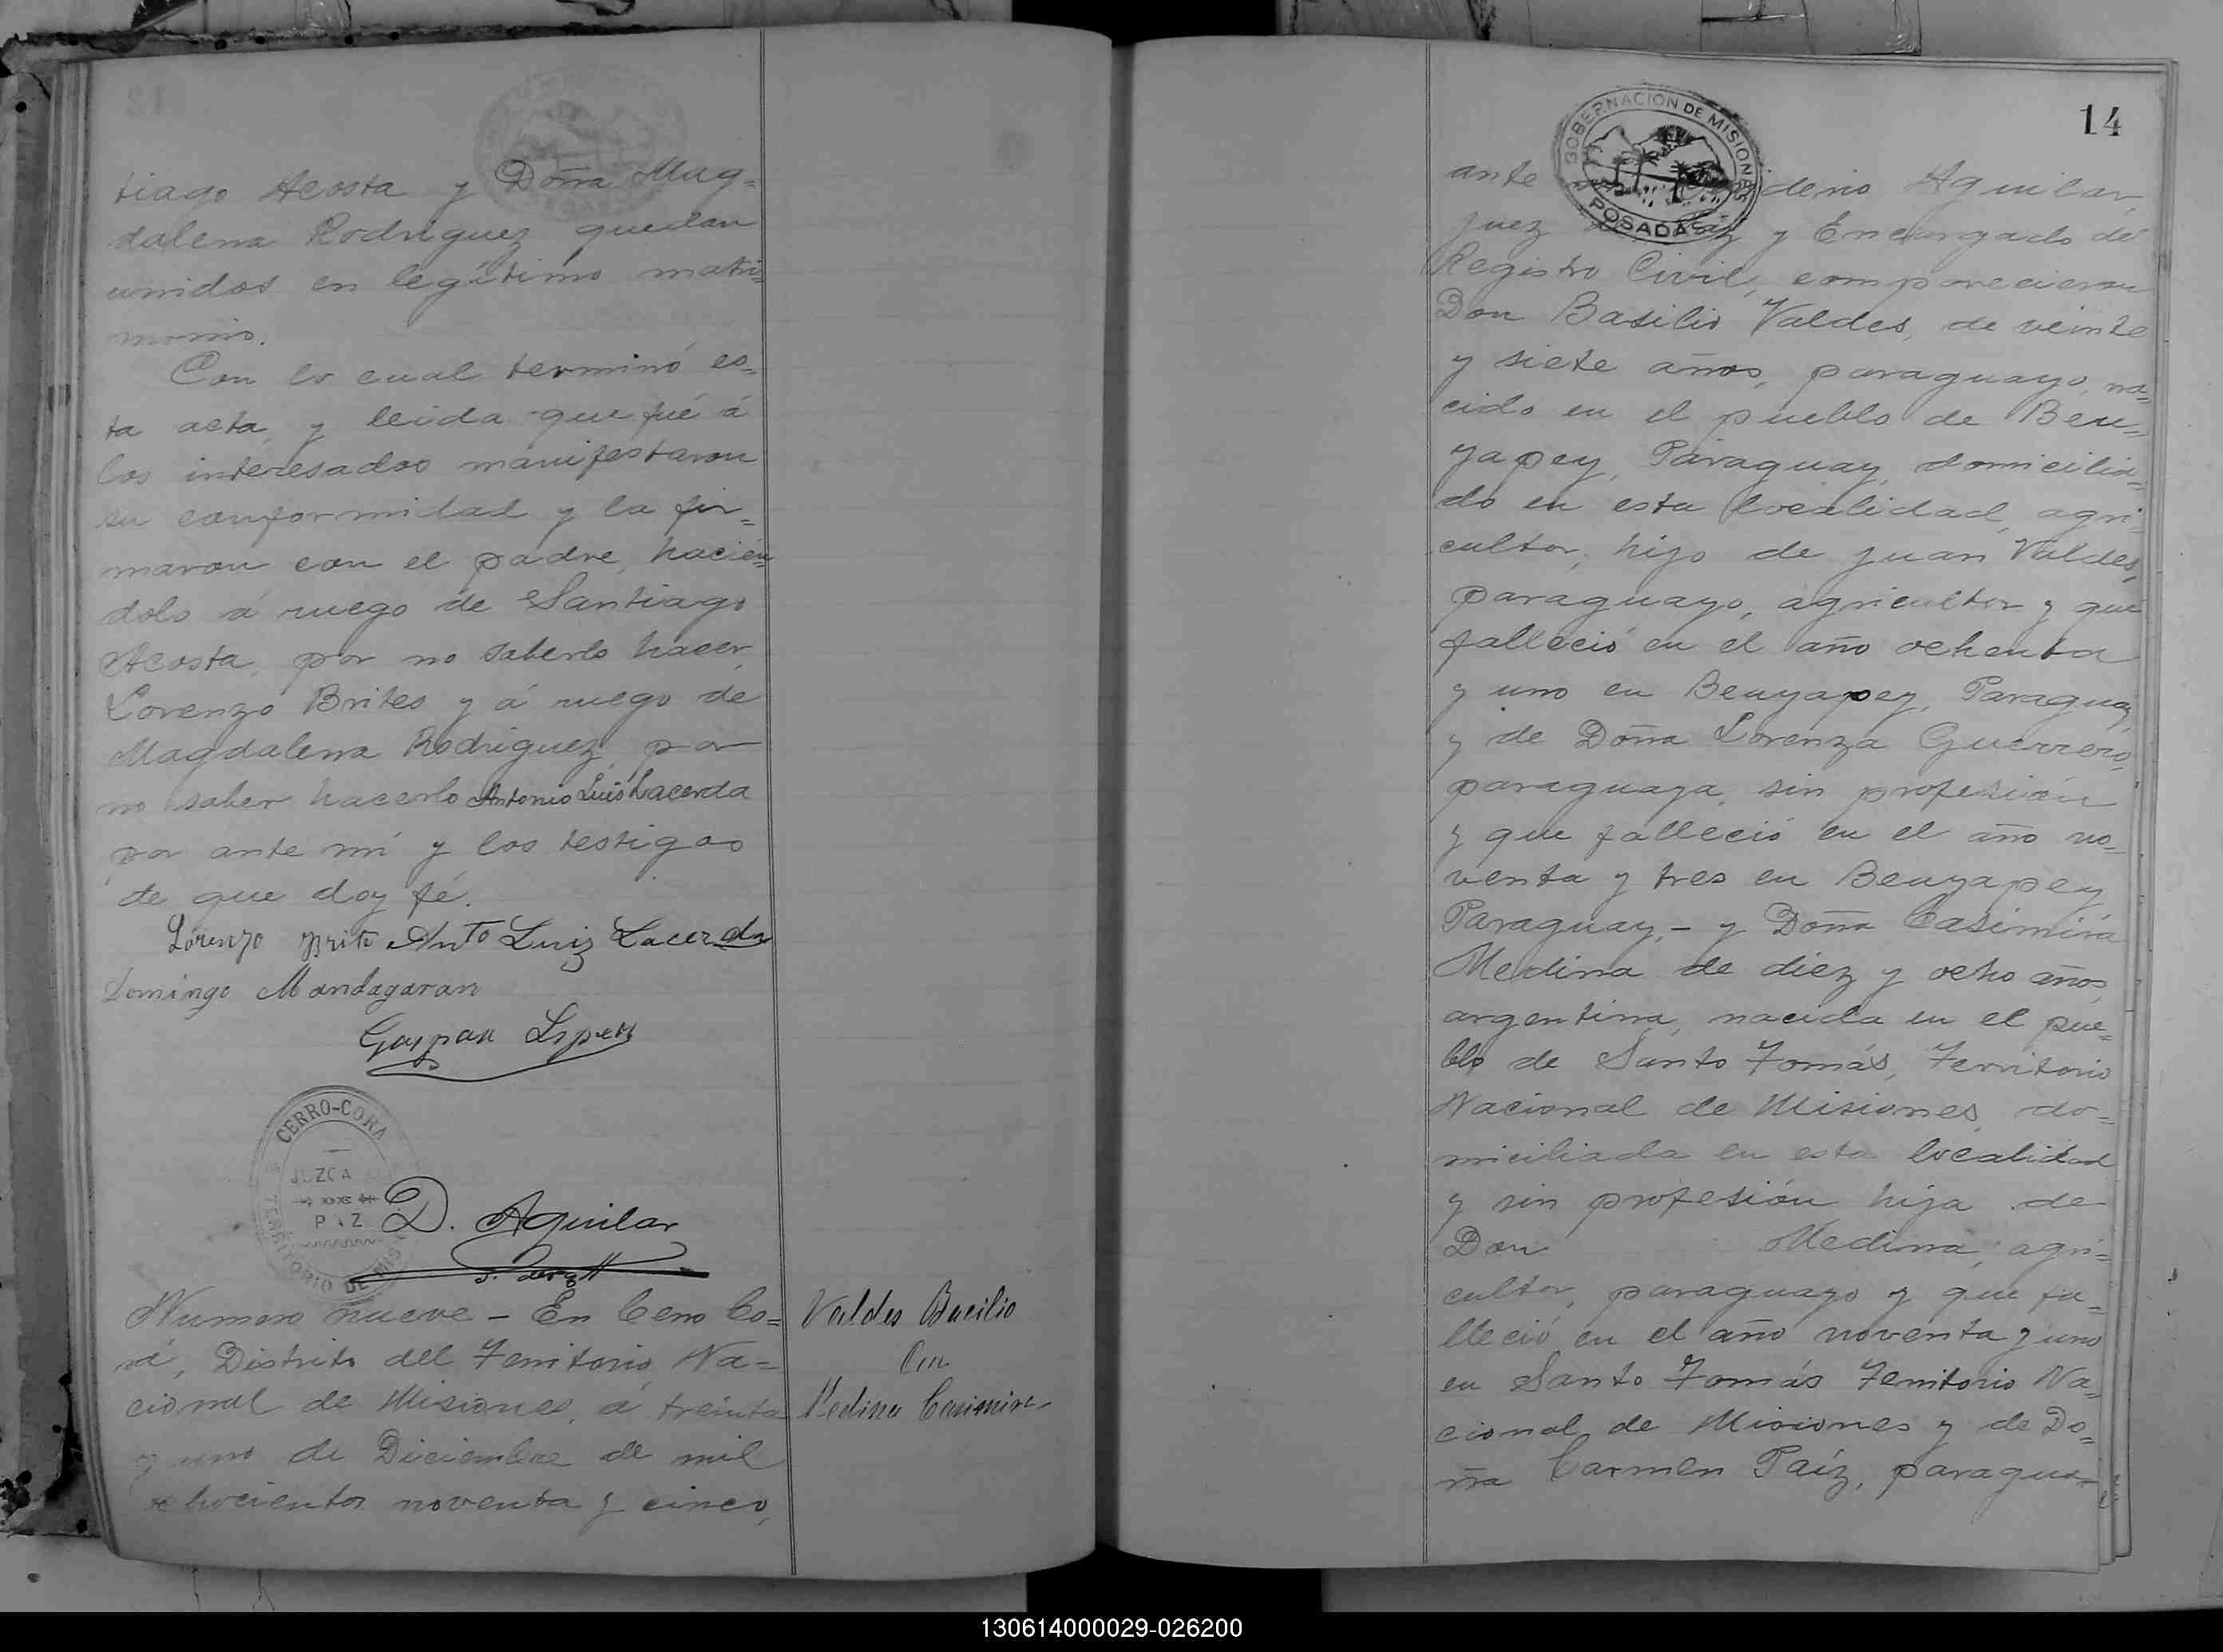 tiago Acosta y Doña Mag=
dalena Rodriguez quedan
unidos en legítimo matri=
monio.
Con lo cual terminó es=
ta acta, y leida que fué á
los interesados manifestaron
su conformidad y la fir=
maron con el padre, hacién=
dolo á ruego de Santiago
Acosta, por no saberlo hacer,
Lorenzo Brites y á ruego de
Magdalena Rodriguez, por
no saber hacerlo Antonio Luis Lacerda
por ante mí y los testigos
de que doy fé.
Lorenzo Brite Anto Luiz Lacerda
Domingo Mandagaran
Gaspar
CERRO-CORA
JUZGA
DE
PAZ
TERRITORIO DE MIS
D. Aguilar
Numero nueve - En Cerro Co=
rá, Distrito del Territorio Na=
cional de Misiones, á treinta
y uno de Diciembre de mil
ochocientos noventa y cinco,
Valdes Bacilio
Con
Medina Casimira
14
GOBERNACION DE MISIONES
POSADAS
ante Aguilar,
Juez Paz y Encargado del
Registro Civil, comparecieron
Don Basilio Valdes, de veinte
y siete años, paraguayo, na=
cido en el pueblo de Ben=
yapey, Paraguay, domicilia=
do en esta localidad, agri=
cultor, hijo de Juan Valdes,
paraguayo, agricultor y que
falleció en el año ochenta
y uno en Benyapey, Paraguay,
y de Doña Lorenza Guerrero,
paraguaya, sin profesión
y que falleció en el año no=
venta y tres en Benyapey
Paraguay,- y Doña Casimira
Medina de diez y ocho años,
argentina, nacida en el pue=
blo de Santo Tomás, Territorio
Nacional de Misiones, do=
miciliada en esta localidad
y sin profesión hija de
Don Medina, agri=
cultor, paraguayo y que fa=
lleció en el año noventa y uno
en Santo Tomás Territorio Na=
cional de Misiones y de Do=
ña Carmen Paíz, paragua=
130614000029-026200